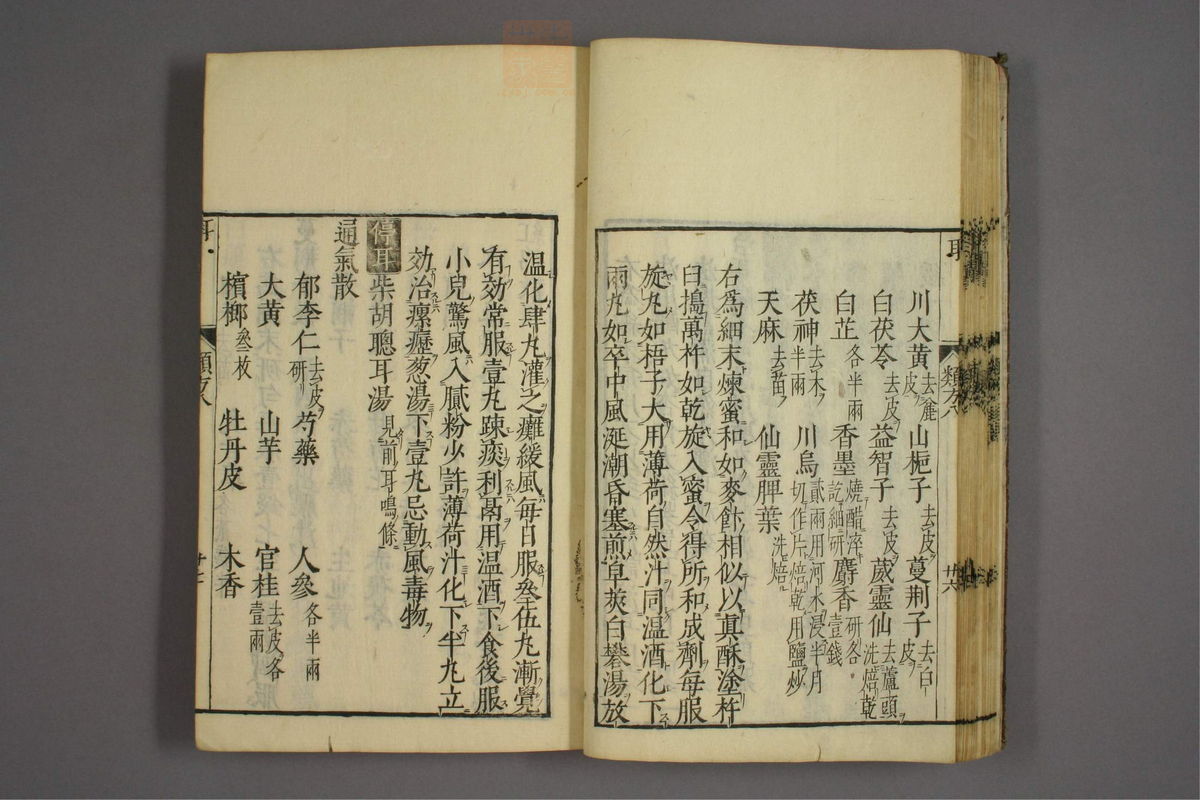 川大黃去麄皮 山梔子去皮 蔓荆子去白皮
白茯苓去皮 益智子去皮 葳靈仙去蘆頭洗焙乾
白芷各半兩 香墨燒醋淬訖細研 麝香研各壹錢
茯神去木半兩 川烏貳兩用河水浸半月切作片焙乾用鹽炒
天麻去苗 仙靈脾葉洗焙
右爲細末煉蜜和如麥飰相似以真酥塗杵
臼搗萬杵如乾旋入蜜令得所和成劑每服
旋丸如梧子大用薄荷自然汁同温酒化下
兩丸如卒中風涎潮昏塞煎皁莢白礬湯放
耳 類方八 廿六
温化肆丸灌之癱緩風每日服叄伍丸漸覺
有效常服壹丸踈痰利鬲用温酒下食後服
小兒驚風入膩粉少許薄荷汁化下半丸立
効治瘰癧葱湯下壹丸忌動風毒物
停耳 柴胡聰耳湯見前耳鳴條
通氣散
郁李仁去皮研 芍藥 人參各半兩
大黃 山芋 官桂去皮各壹兩
檳榔叄枚 牡丹皮 木香
耳 類方八 廿七